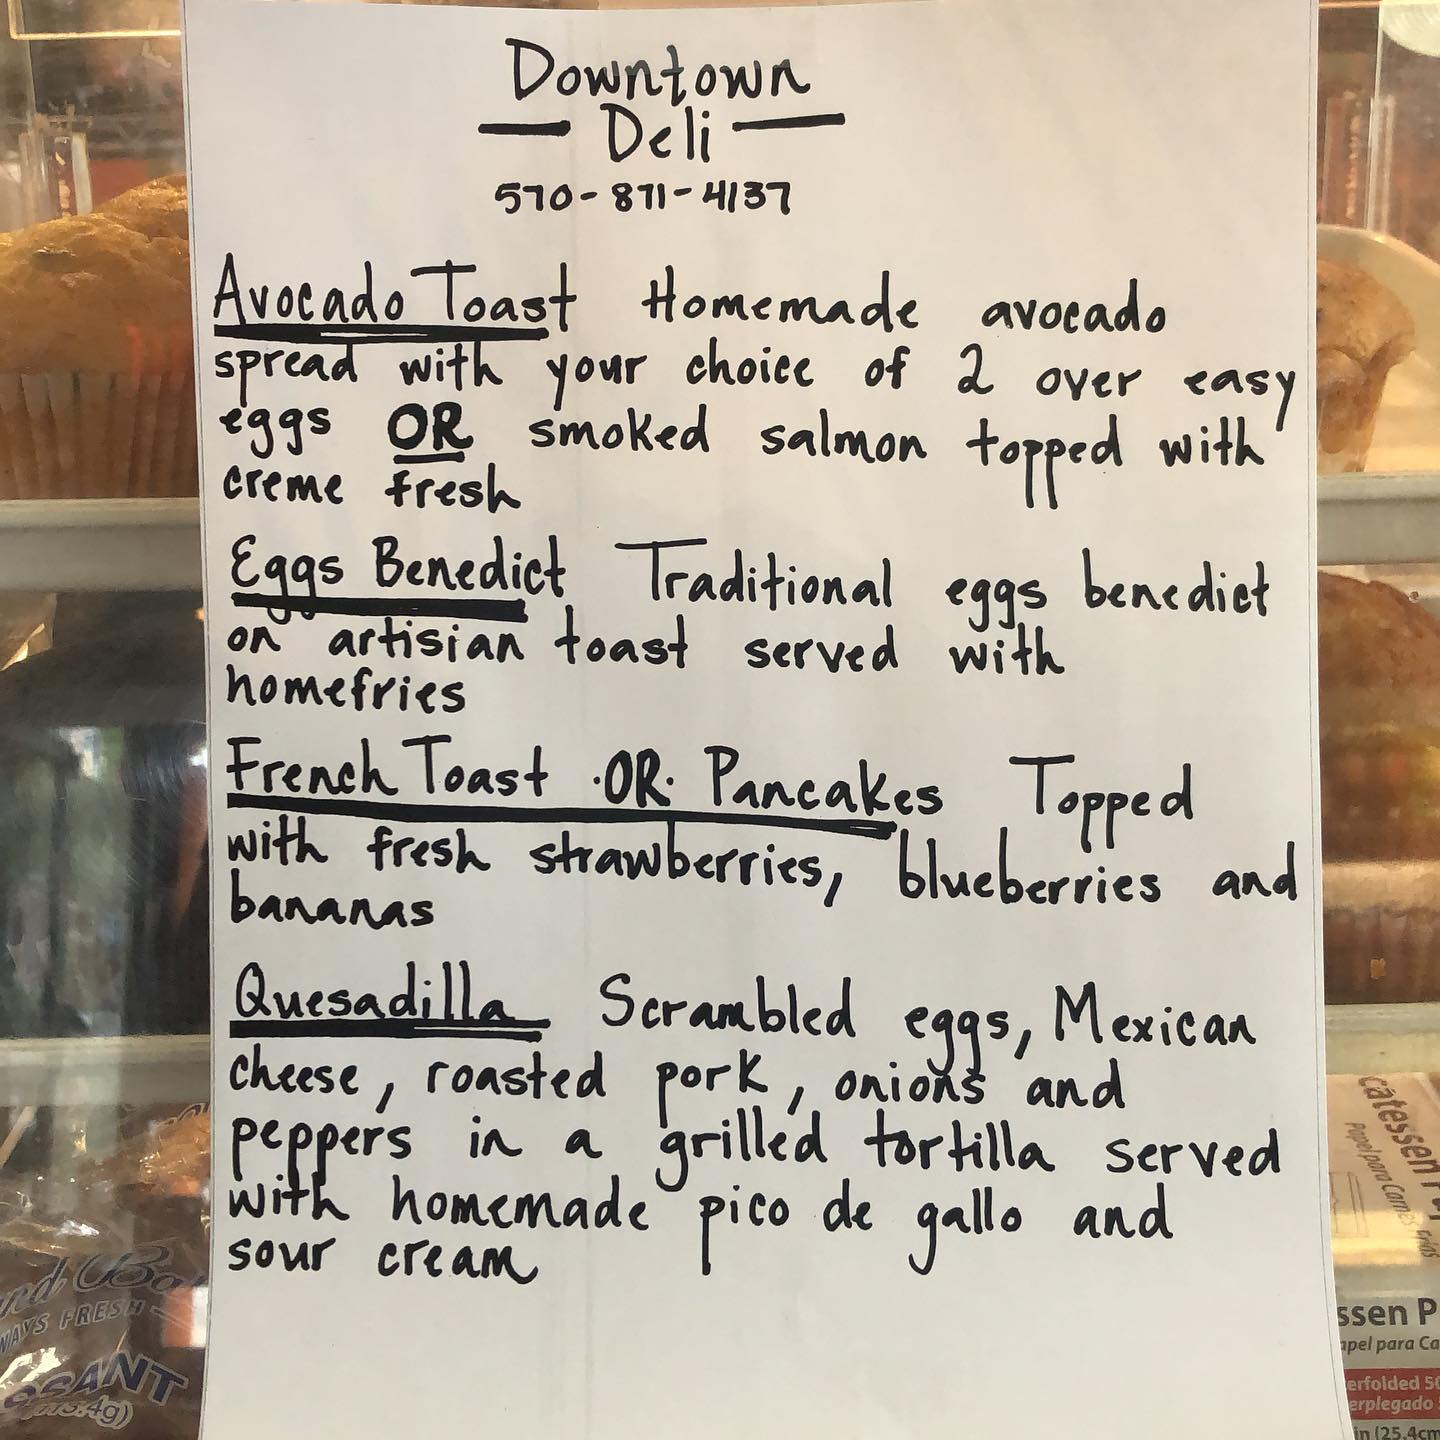 Downtown
Deli
570-871-4137
Avocado Toast Homemade avocado
spread with your choice of 2 over easy
eggs OR smoked salmon topped with
creme fresh
Eggs Benedict Traditional eggs benedict
on artisian toast served with
homefries
French Toast ·OR· Pancakes Topped
with fresh strawberries, blueberries and
bananas
Quesadilla Scrambled eggs, Mexican
cheese, roasted pork, onions and
peppers in a grilled tortilla served
with homemade pico de gallo and
sour cream
FRESH
Papel para Carnes Frías
para
in (25.4cm